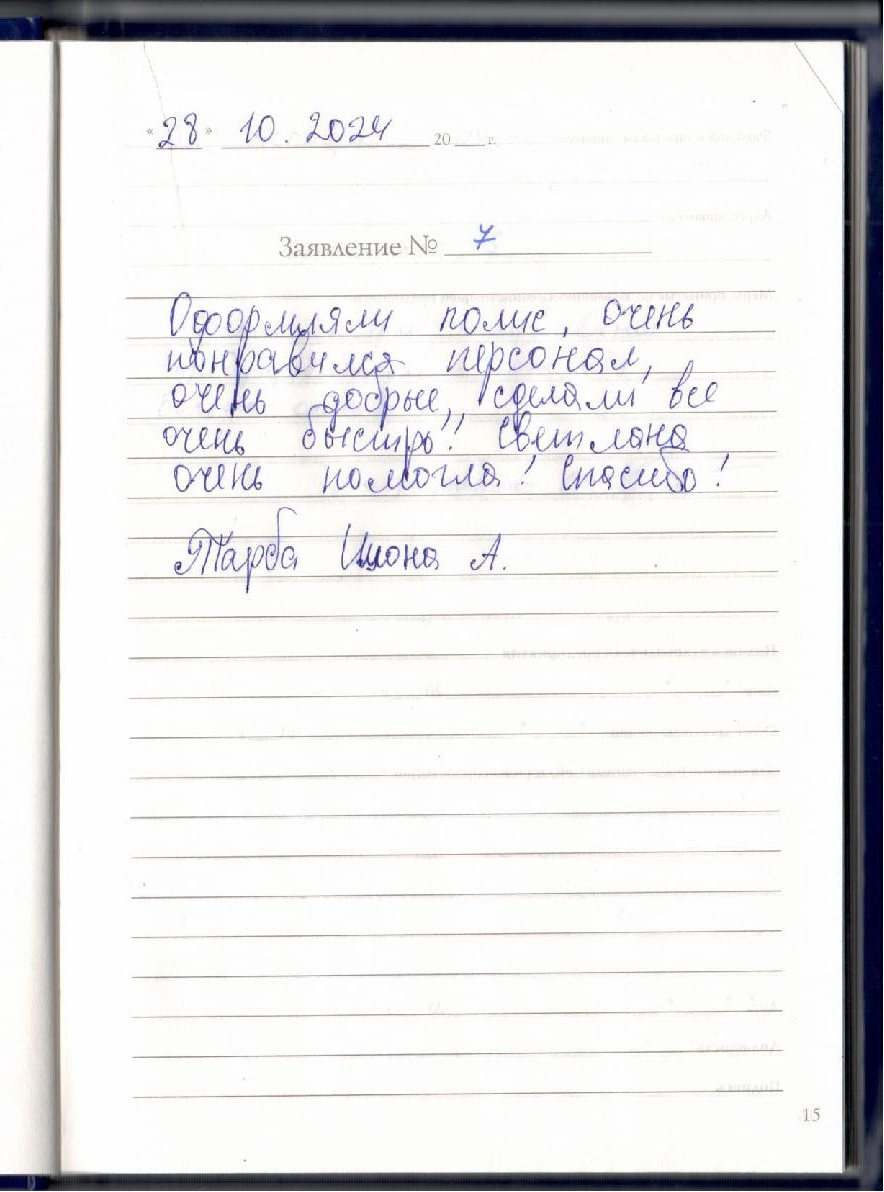 «28» 10. 2024 20 г.
Заявление № 7
Оформляли полис, очень
понравился персонал,
очень добрые, сделали все
очень быстро! Светлана
очень помогла! Спасибо!
Тарба А.
15